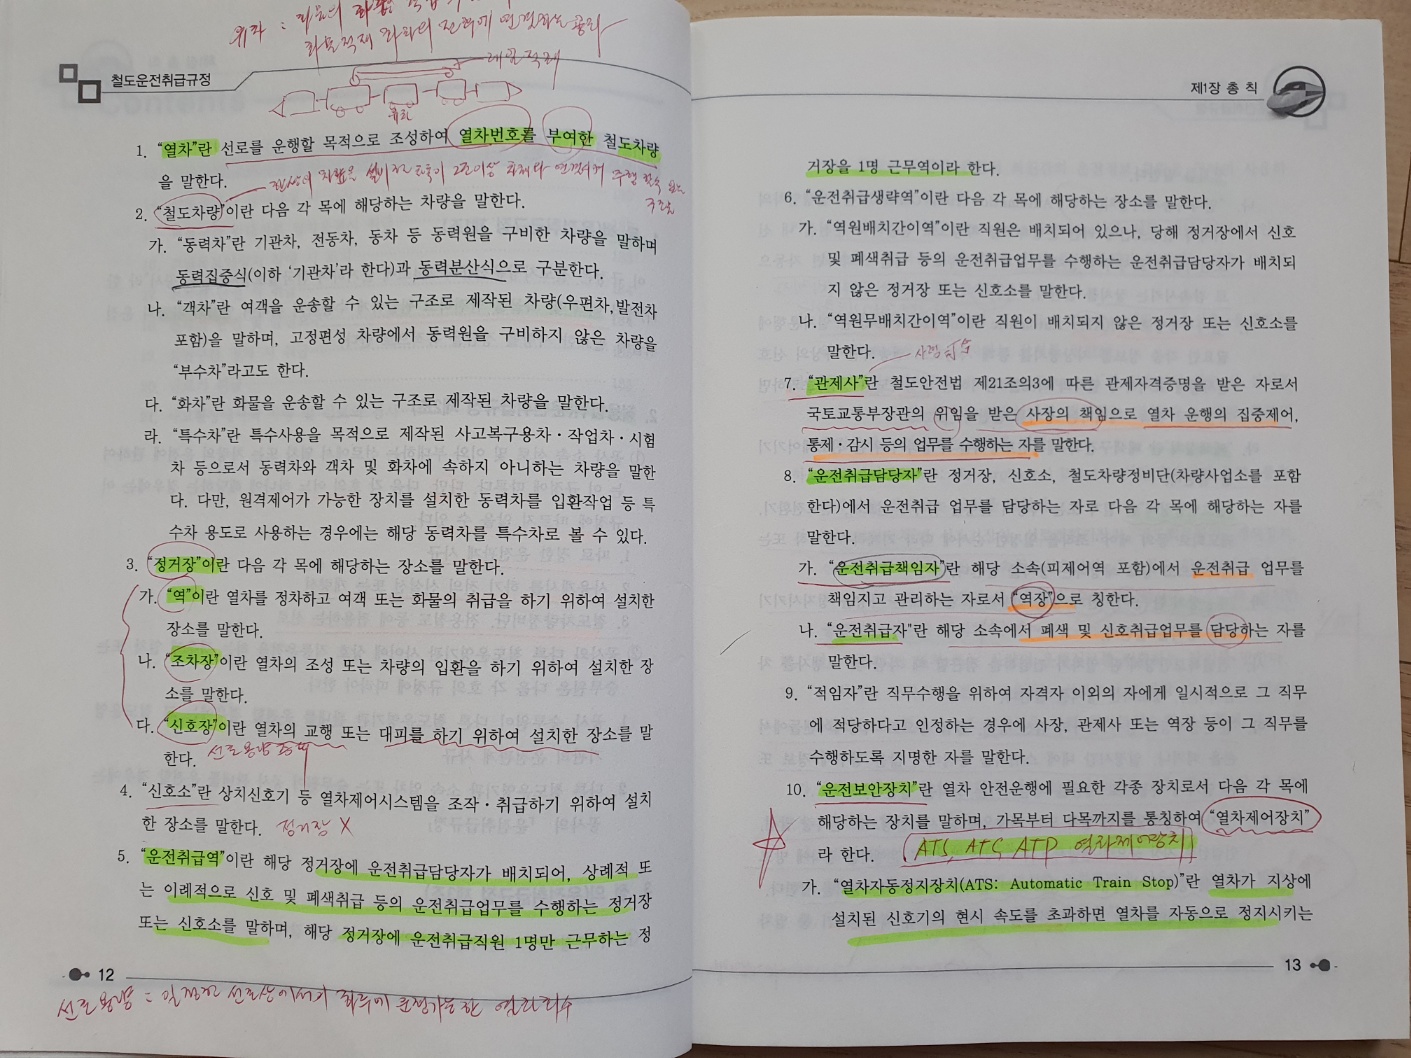 철도운전취급규정
1. “열차”란 선로를 운행할 목적으로 조성하여 열차번호를 부여한 철도차량
을 말한다.
2. “철도차량”이란 다음 각 목에 해당하는 차량을 말한다.
가. “동력차”란 기관차, 전동차, 동차 등 동력원을 구비한 차량을 말하며
동력집중식(이하 ‘기관차’라 한다)과 동력분산식으로 구분한다.
나. “객차”란 여객을 운송할 수 있는 구조로 제작된 차량(우편차,발전차
포함)을 말하며, 고정편성 차량에서 동력원을 구비하지 않은 차량을
“부수차”라고도 한다.
다. “화차”란 화물을 운송할 수 있는 구조로 제작된 차량을 말한다.
라. “특수차”란 특수사용을 목적으로 제작된 사고복구용차·작업차·시험
차 등으로서 동력차와 객차 및 화차에 속하지 아니하는 차량을 말한
다. 다만, 원격제어가 가능한 장치를 설치한 동력차를 입환작업 등 특
수차 용도로 사용하는 경우에는 해당 동력차를 특수차로 볼 수 있다.
3. “정거장”이란 다음 각 목에 해당하는 장소를 말한다.
가. “역”이란 열차를 정차하고 여객 또는 화물의 취급을 하기 위하여 설치한
장소를 말한다.
나. “조차장”이란 열차의 조성 또는 차량의 입환을 하기 위하여 설치한 장
소를 말한다.
다. “신호장”이란 열차의 교행 또는 대피를 하기 위하여 설치한 장소를 말
한다.
선로용량
4. “신호소”란 상치신호기 등 열차제어시스템을 조작·취급하기 위하여 설치
한 장소를 말한다. 정거장 X
5. “운전취급역”이란 해당 정거장에 운전취급담당자가 배치되어, 상례적 또
는 이례적으로 신호 및 폐색취급 등의 운전취급업무를 수행하는 정거장
또는 신호소를 말하며, 해당 정거장에 운전취급직원 1명만 근무하는 정
12
선로용량 =
제1장 총 칙
거장을 1명 근무역이라 한다.
6. “운전취급생략역”이란 다음 각 목에 해당하는 장소를 말한다.
가. “역원배치간이역”이란 직원은 배치되어 있으나, 당해 정거장에서 신호
및 폐색취급 등의 운전취급업무를 수행하는 운전취급담당자가 배치되
지 않은 정거장 또는 신호소를 말한다.
나. “역원무배치간이역”이란 직원이 배치되지 않은 정거장 또는 신호소를
말한다.
7. “관제사”란 철도안전법 제21조의3에 따른 관제자격증명을 받은 자로서
국토교통부장관의 위임을 받은 사장의 책임으로 열차 운행의 집중제어,
통제·감시 등의 업무를 수행하는 자를 말한다.
8. “운전취급담당자”란 정거장, 신호소, 철도차량정비단(차량사업소를 포함
한다)에서 운전취급 업무를 담당하는 자로 다음 각 목에 해당하는 자를
말한다.
가. “운전취급책임자”란 해당 소속(피제어역 포함)에서 운전취급 업무를
책임지고 관리하는 자로서 “역장”으로 칭한다.
나. “운전취급자”란 해당 소속에서 폐색 및 신호취급업무를 담당하는 자를
말한다.
9. “적임자”란 직무수행을 위하여 자격자 이외의 자에게 일시적으로 그 직무
에 적당하다고 인정하는 경우에 사장, 관제사 또는 역장 등이 그 직무를
수행하도록 지명한 자를 말한다.
10. “운전보안장치”란 열차 안전운행에 필요한 각종 장치로서 다음 각 목에
해당하는 장치를 말하며, 가목부터 다목까지를 통칭하여 “열차제어장치”
라 한다. ATS, ATC, ATP 열차제어장치
가. “열차자동정지장치(ATS: Automatic Train Stop)”란 열차가 지상에
설치된 신호기의 현시 속도를 초과하면 열차를 자동으로 정지시키는
13